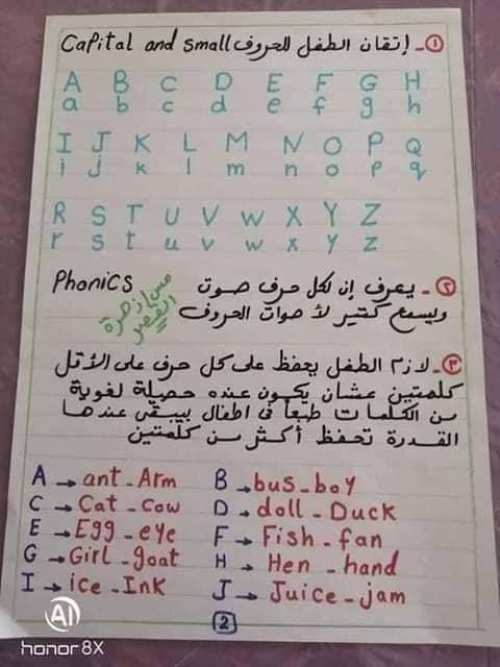 ١- إتقان الطفل للحروف Capital and small
A B C D E F G H
a b c d e f g h
I J K L M N O P Q
i j k l m n o p q
R S T U V W X Y Z
r s t u v w x y z
٢- يعرف إن لكل حرف صوت Phonics
ويسمع كتير لأصوات الحروف
مس / زهرة
القصر
٣- لازم الطفل يحفظ على كل حرف على الأقل
كلمتين عشان يكون عنده حصيلة لغوية
من الكلمات طبعاً في اطفال بيبقى عندها
القدرة تحفظ أكثر من كلمتين
A → ant - Arm B → bus - boy
C → Cat - Cow D → doll - Duck
E → Egg - eye F → Fish - fan
G → Girl - goat H → Hen - hand
I → ice - Ink J → Juice - jam
2
AI
honor 8X